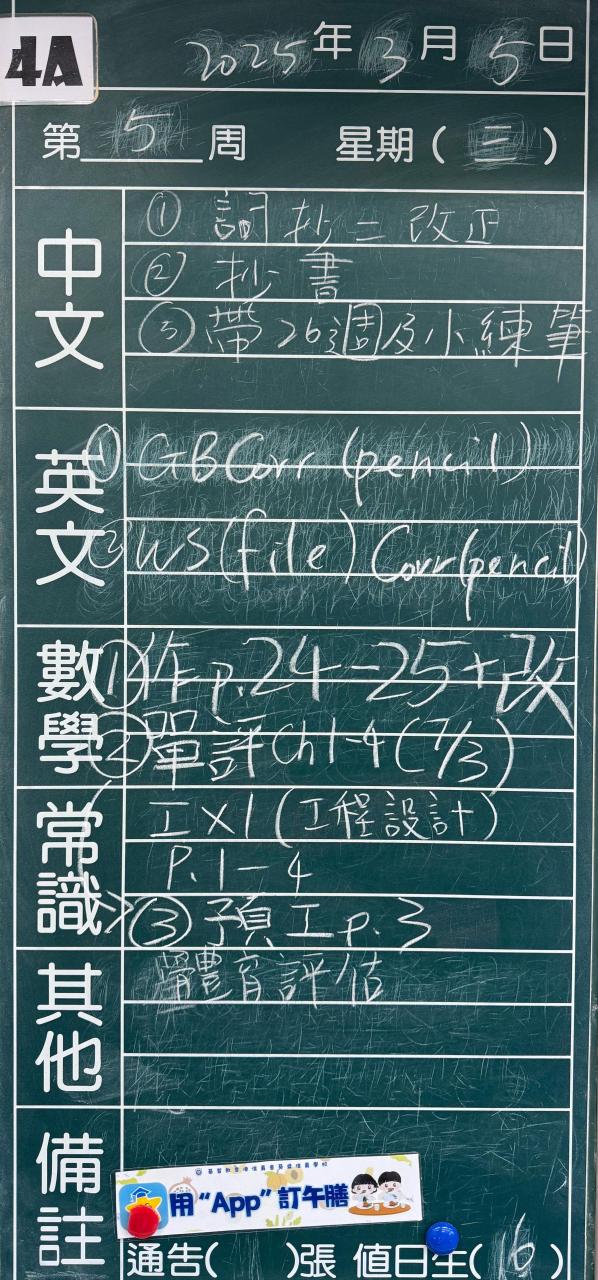 4A
2025年3月5日
第5周 星期(三)
中文
① 詞抄二改正
② 抄書
③ 帶26週及小練筆
英文
① GB Corr (pencil)
② WS (file) Corr (pencil)
數學
① 作p.24-25+改
② 單評 Ch1-4 (7/3)
常識
工×1 (工程設計)
P.1-4
③ 預工p.3
其他
體育評估
備註
用“App”訂午膳
通告( )張 值日生(16)